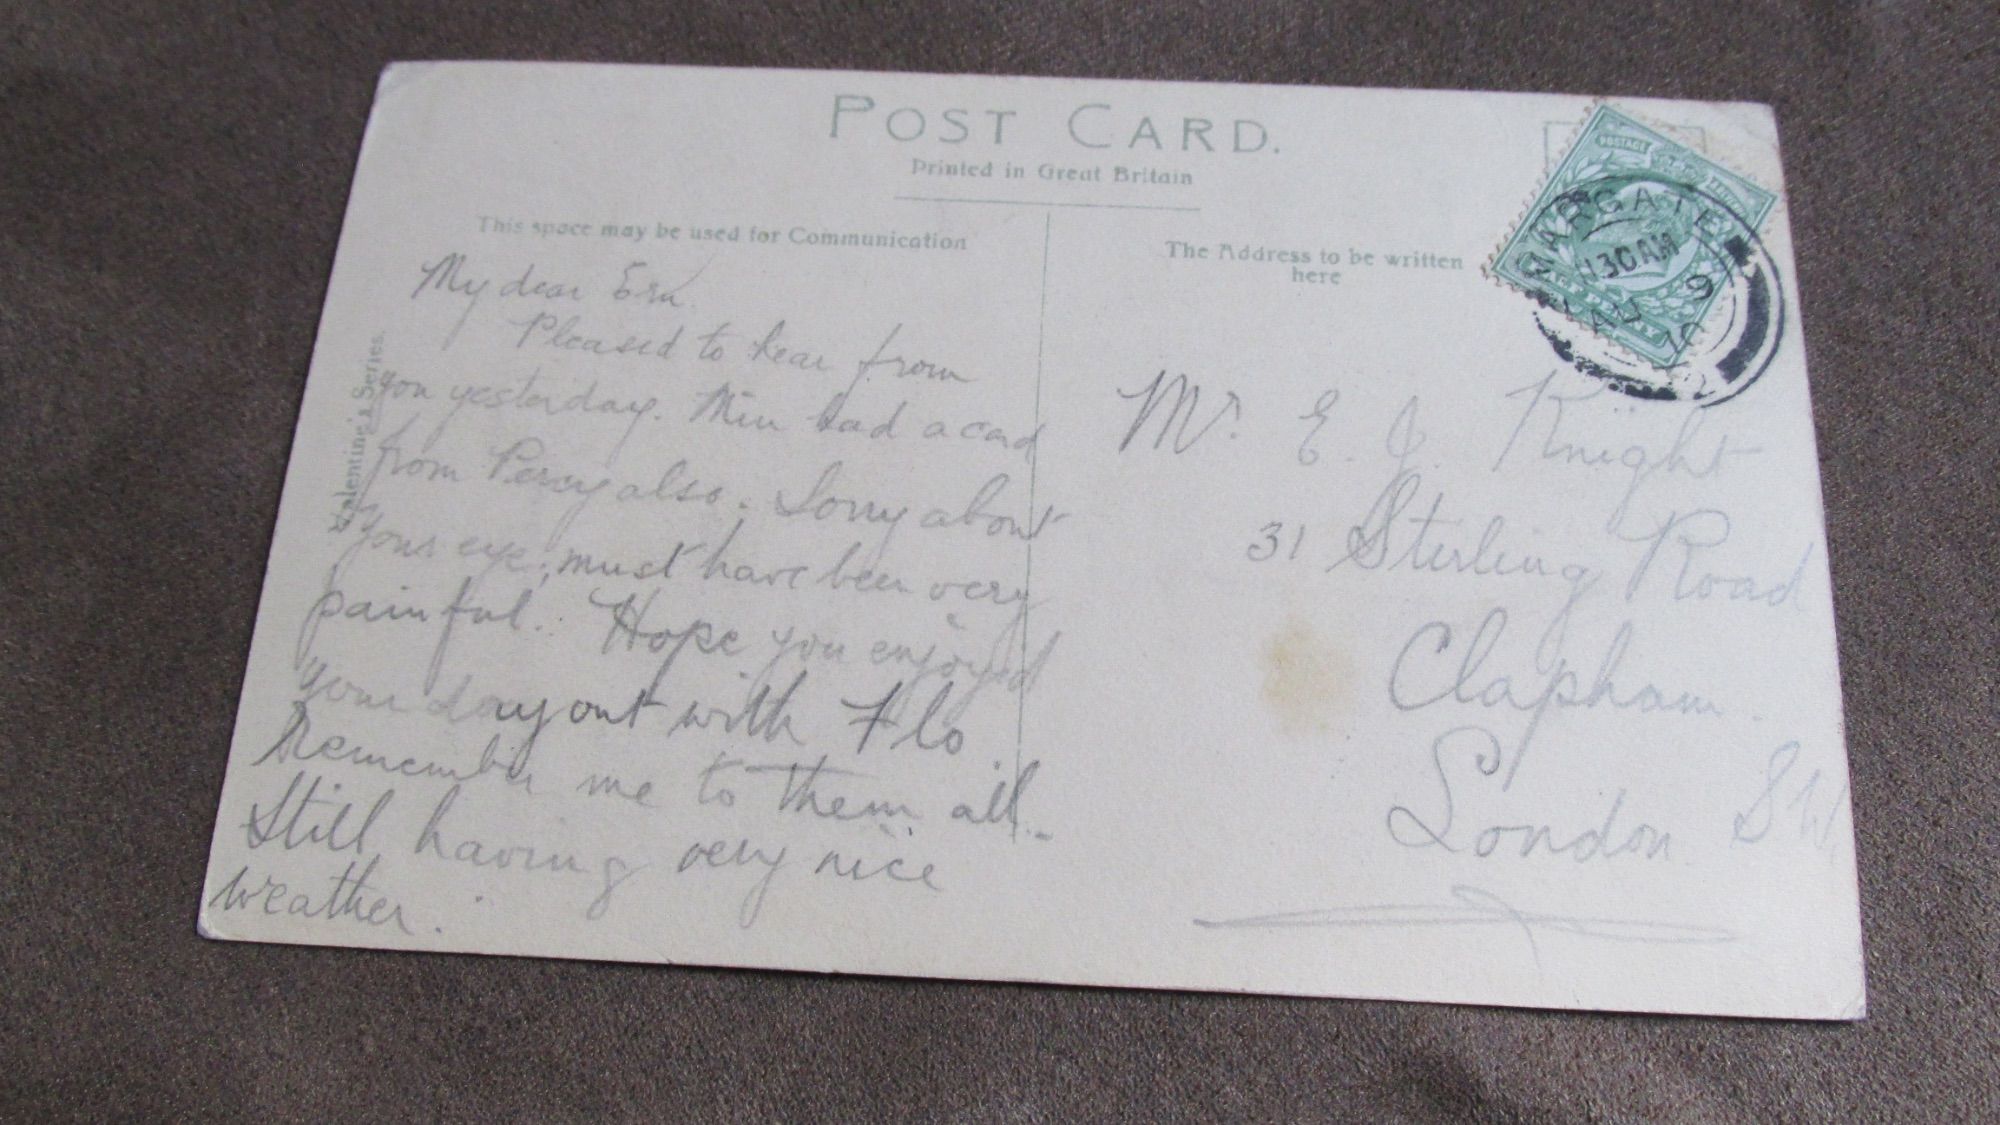 POST CARD.
Printed in Great Britain
This space may be used for Communication
The Address to be written
here
Valentine's Series
POSTAGE
HALF PENNY
MARGATE
30 AM
AU 9
10
My dear Ern.
Pleased to hear from
you yesterday. Min had a card
from Percy also. Sorry about
your eye, must have been very
painful. Hope you enjoyed
your day out with Flo
Remember me to them all.
Still having very nice
weather.
Mr. E. J. Knight
31 Sterling Road
Clapham.
London SW